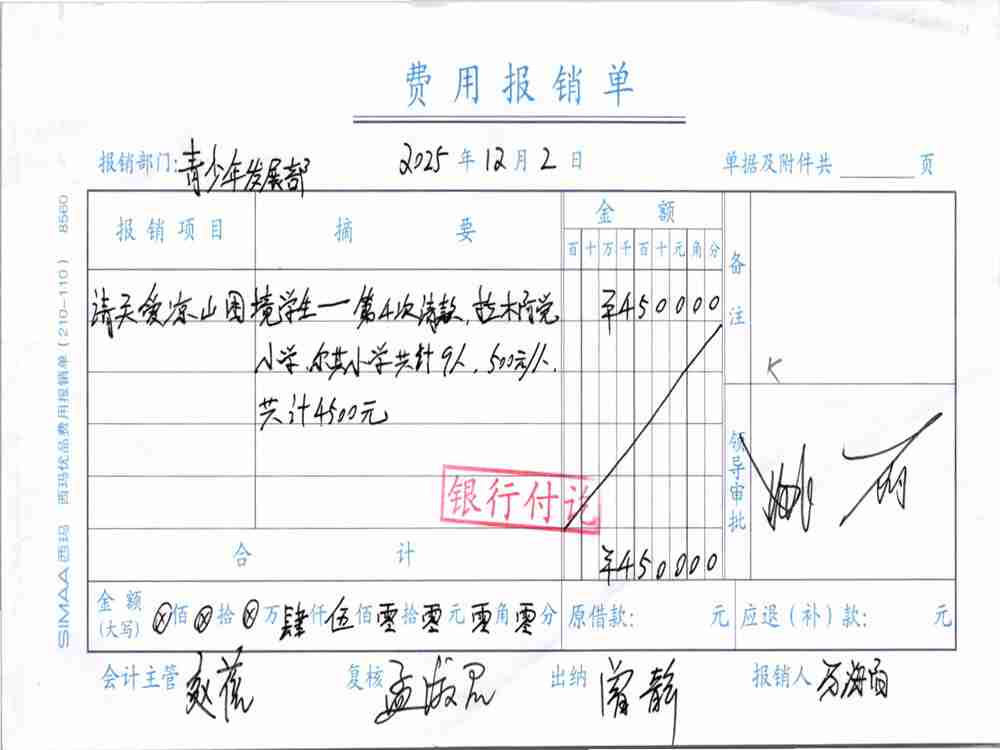 费用报销单
报销部门:青少年发展部 2025年12月2日 单据及附件共 页
报销项目 摘要 金额 备注
百十万千百十元角分
请关爱凉山困境学生一第4次请款,拉木阿觉 ¥450000
小学、尔其小学共计9人,500元/人,
共计4500元
银行付讫
领导审批
合计 ¥450000
金额(大写) ⊗佰⊗拾⊗万肆仟伍佰零拾零元零角零分 原借款: 元 应退(补)款: 元
会计主管 复核 孟 出纳 曾静 报销人 万海雨
SIMAA西玛 西玛优品费用报销单(210-110) 8560